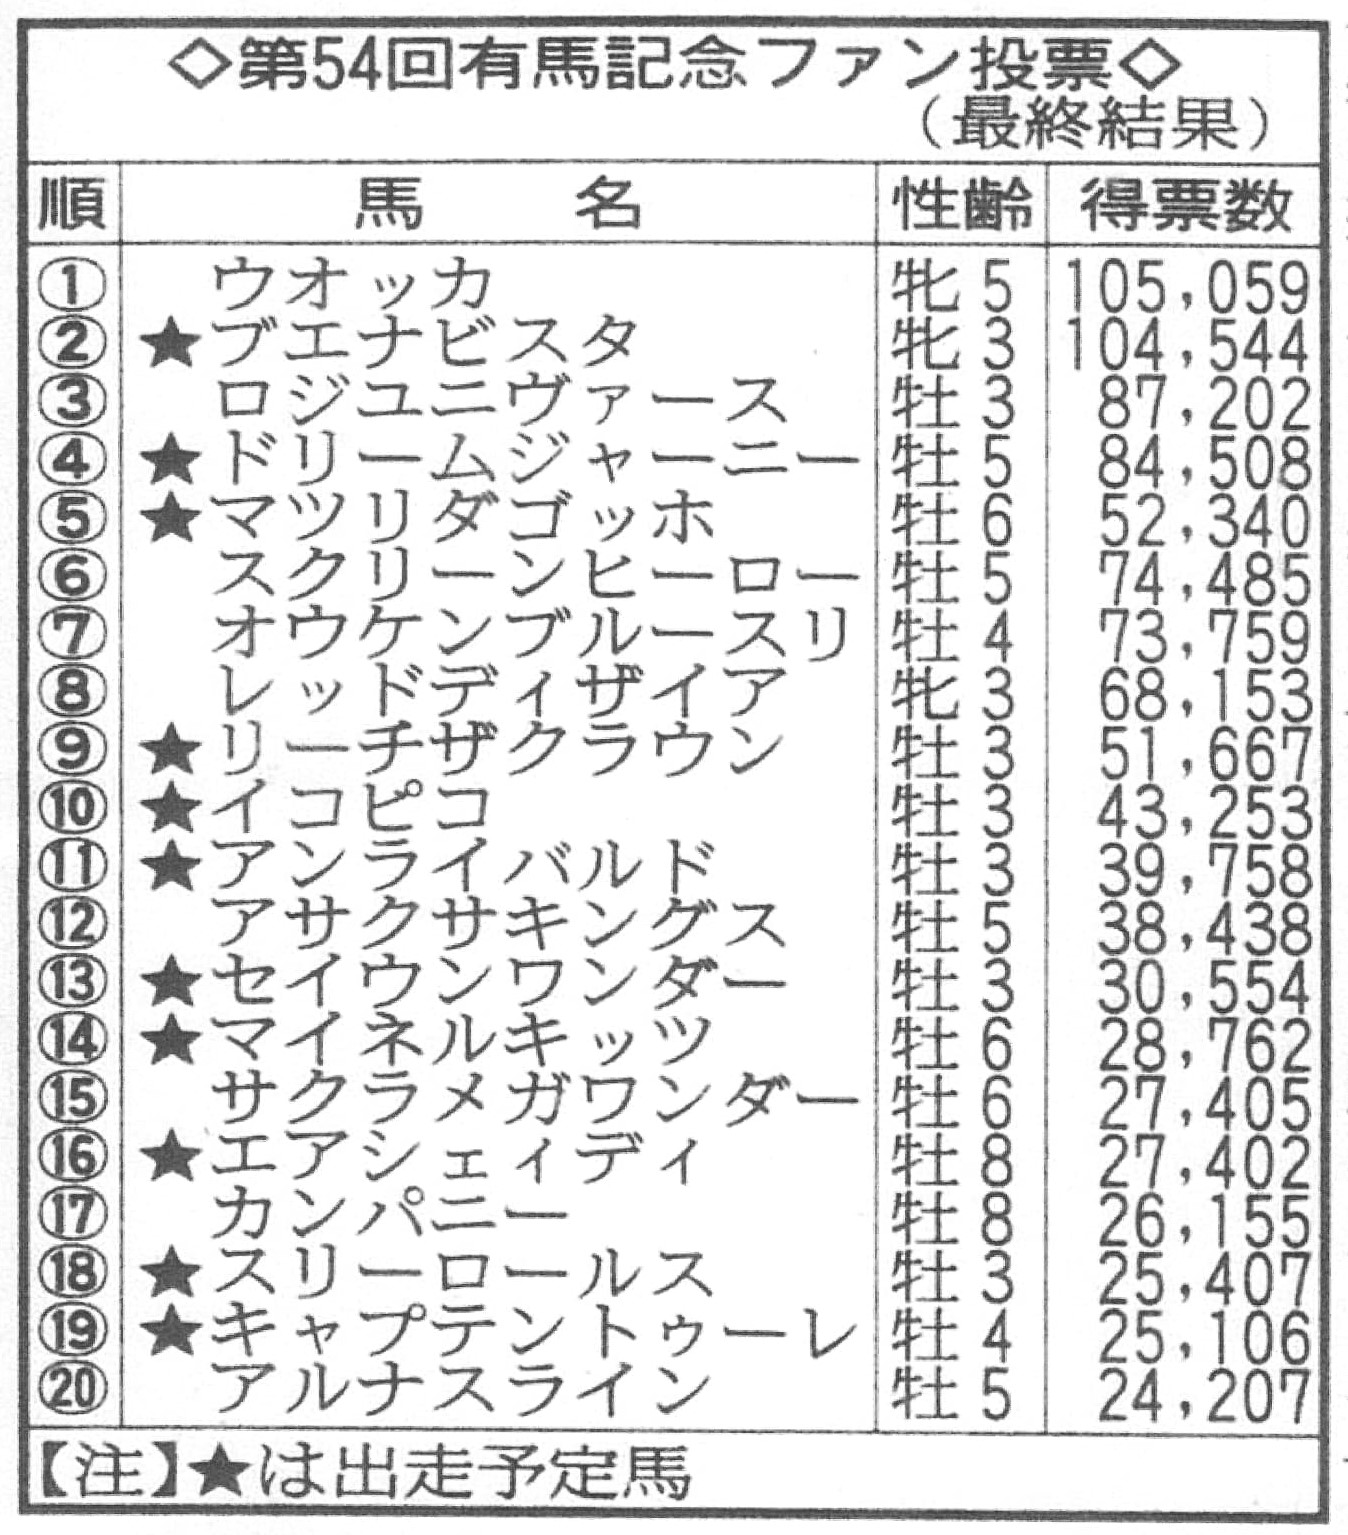 ◇第54回有馬記念ファン投票◇
（最終結果）
順 馬名 性齢 得票数
① ウオッカ 牝5 105,059
② ★ブエナビスタ 牝3 104,544
③ ロジユニヴァース 牡3 87,202
④ ★ドリームジャーニー 牡5 84,508
⑤ ★マツリダゴッホ 牡6 52,340
⑥ スクリーンヒーロー 牡5 74,485
⑦ オウケンブルースリ 牡4 73,759
⑧ レッドディザイア 牝3 68,153
⑨ ★リーチザクラウン 牡3 51,667
⑩ ★イコピコ 牡3 43,253
⑪ ★アンライバルド 牡3 39,758
⑫ アサクサキングス 牡5 38,438
⑬ ★セイウンワンダー 牡3 30,554
⑭ ★マイネルキッツ 牡6 28,762
⑮ サクラメガワンダー 牡6 27,405
⑯ ★エアシェイディ 牡8 27,402
⑰ カンパニー 牡8 26,155
⑱ ★スリーロールス 牡3 25,407
⑲ ★キャプテントゥーレ 牡4 25,106
⑳ アルナスライン 牡5 24,207
【注】★は出走予定馬